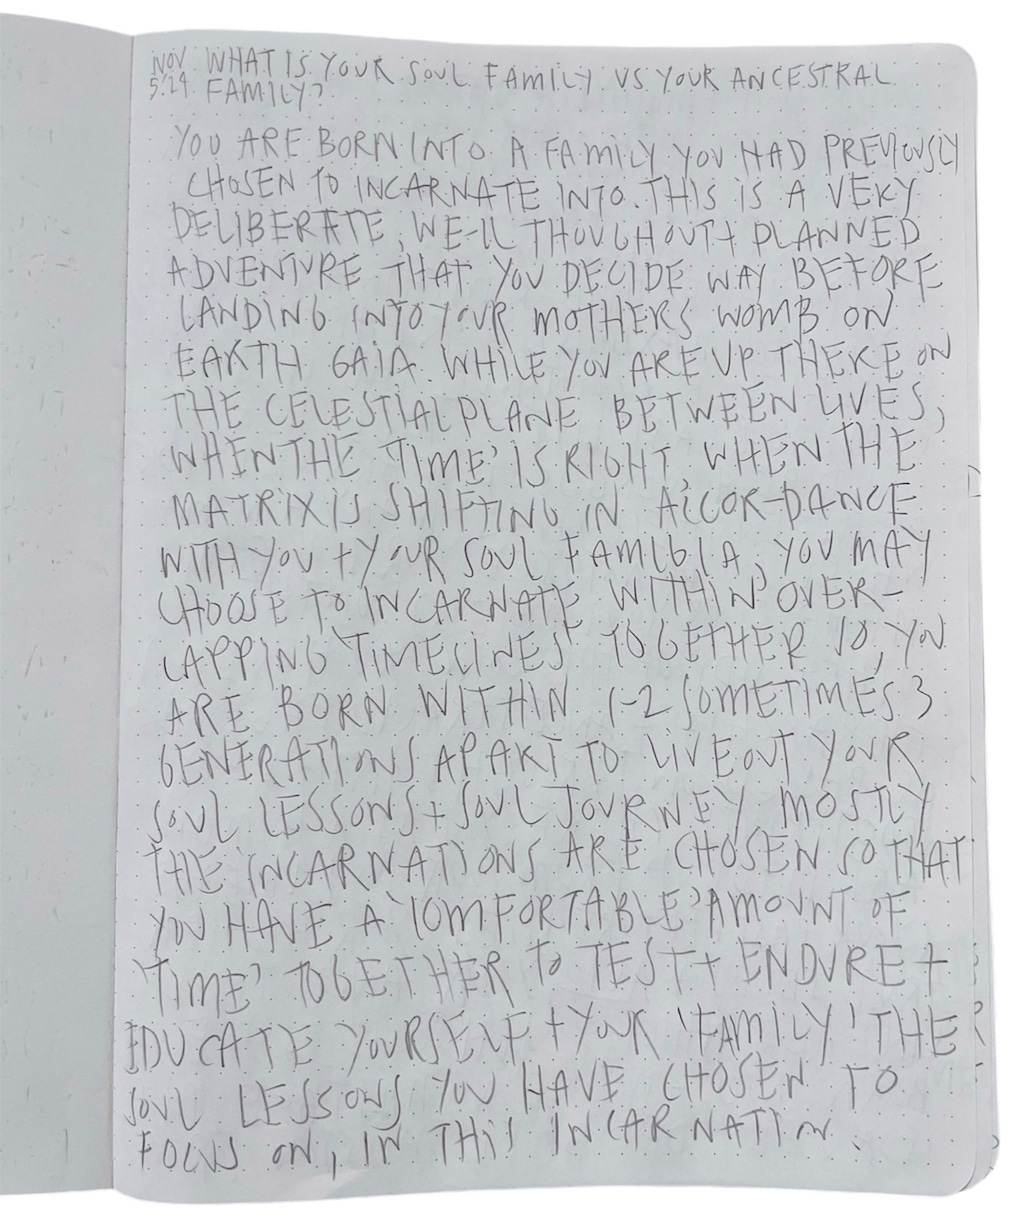 NOV WHAT IS YOUR SOUL FAMILY VS YOUR ANCESTRAL
5.24 FAMILY?
YOU ARE BORN INTO A FAMILY YOU HAD PREVIOUSLY
CHOSEN TO INCARNATE INTO. THIS IS A VERY
DELIBERATE, WELL THOUGHOUT + PLANNED
ADVENTURE THAT YOU DECIDE WAY BEFORE
LANDING INTO YOUR MOTHERS WOMB ON
EARTH GAIA. WHILE YOU ARE UP THERE ON
THE CELESTIAL PLANE BETWEEN LIVES,
WHEN THE 'TIME' IS RIGHT, WHEN THE
MATRIX IS SHIFTING IN ACCOR-DANCE
WITH YOU + YOUR SOUL FAMIGLIA, YOU MAY
CHOOSE TO INCARNATE WITHIN OVER-
LAPPING 'TIMELINES' TOGETHER SO, YOU
ARE BORN WITHIN 1-2 SOMETIMES 3
GENERATIONS APART TO LIVE OUT YOUR
SOUL LESSONS + SOUL JOURNEY MOSTLY
THE INCARNATIONS ARE CHOSEN SO THAT
YOU HAVE A 'COMFORTABLE' AMOUNT OF
'TIME' TOGETHER TO TEST + ENDURE +
EDUCATE YOURSELF + YOUR 'FAMILY' THE
SOUL LESSONS YOU HAVE CHOSEN TO
FOCUS ON, IN THIS INCARNATION.